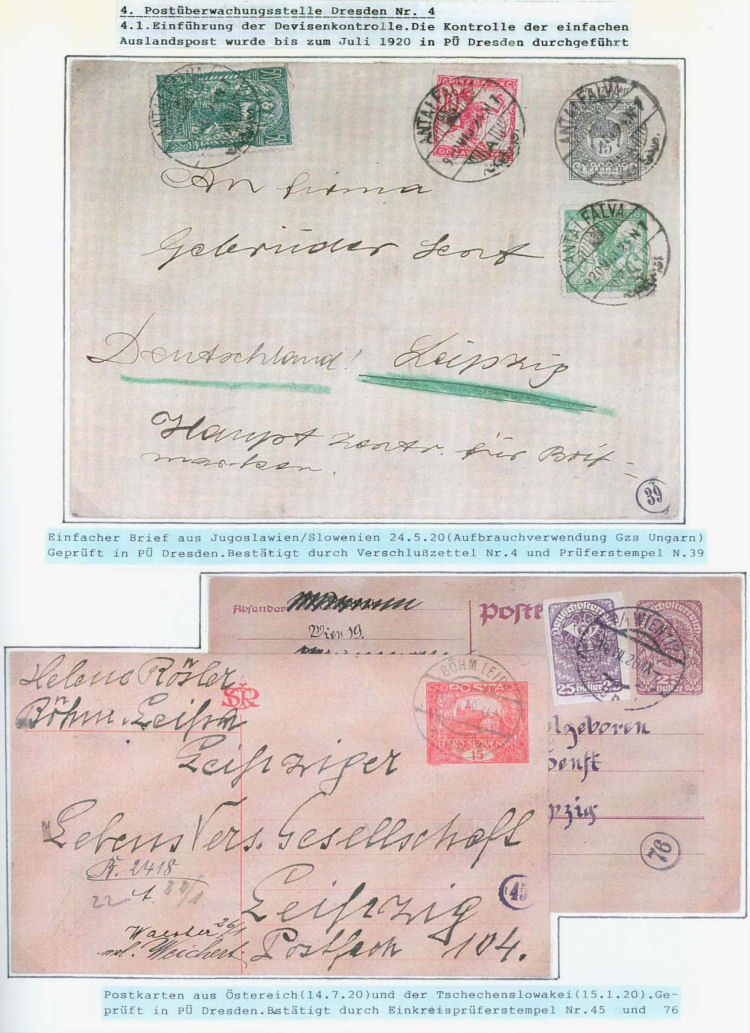 4. Postüberwachungsstelle Dresden Nr. 4
4.1.Einführung der Devisenkontrolle.Die Kontrolle der einfachen
Auslandspost wurde bis zum Juli 1920 in PÜ Dresden durchgeführt
ANTALFALVA
ANTALFALVA
ANTALFALVA
15
An Firma
Gebrüder Senf
Deutschland! Leipzig
Haupt Zentr. für Brif=
marken.
39
Einfacher Brief aus Jugoslawien/Slowenien 24.5.20(Aufbrauchverwendung Gzs Ungarn)
Geprüft in PÜ Dresden.Bestätigt durch Verschlußzettel Nr.4 und Prüferstempel N.39
Absender
Wien 19.
Postk
Deutschösterreich
25 heller
WIEN
25 heller
lgeboren
Senft
pzig
76
Helene Rösler
Böhm. Leipa
ČSR
BÖHM. LEIPA
POSTA
ČESKO-SLOVENSKÁ
15
Leipziger
Lebens Vers. Gesellschaft
R. 2418
22
Leipzig
45
Weichert
Postfach 104.
Postkarten aus Östereich(14.7.20)und der Tschechenslowakei(15.1.20).Ge-
prüft in PÜ Dresden.Bstätigt durch Einkreisprüferstempel Nr.45 und 76